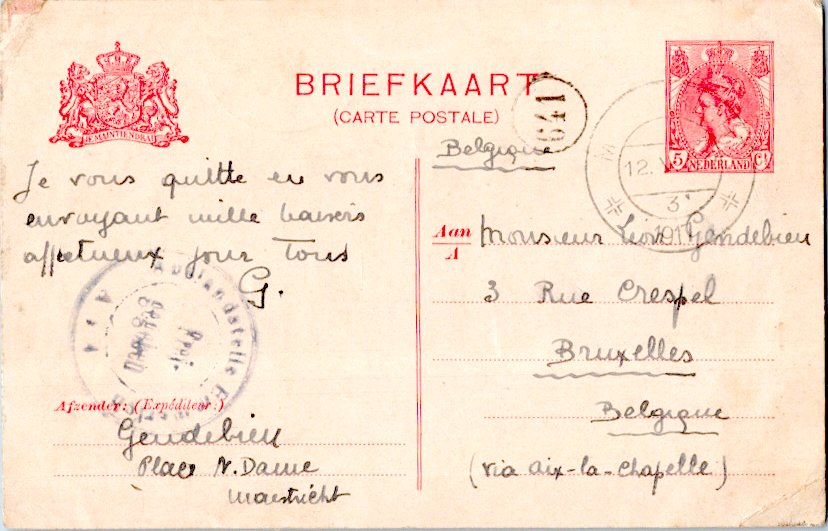 BRIEFKAART
(CARTE POSTALE)
JE MAINTIENDRAI
641
5 Ct
NEDERLAND
12.
3
191
Je vous quitte en vous
envoyant mille baisers
affectueux pour Tous
G.
Auslandstelle
Frei-
gegeben
Afzender: (Expéditeur:)
Gendebien
Place N. Dame
Maestricht
Belgique
Aan
A
Monsieur Léon Gendebien
3 Rue Crespel
Bruxelles
Belgique
(via aix-la-chapelle)